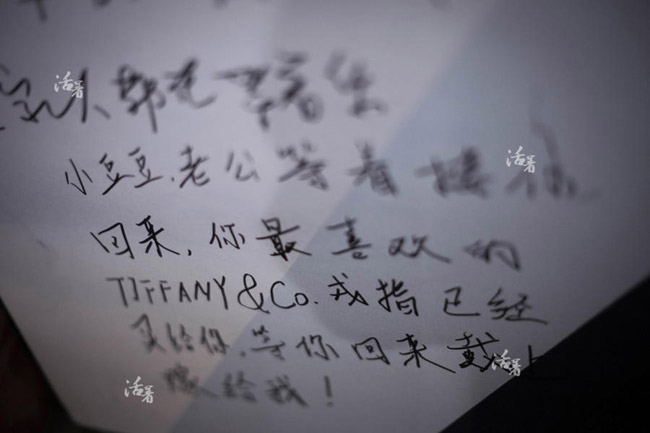 小豆豆.老公等着接你
回来,你最喜欢的
TIFFANY&Co.戒指已经
买给你,等你回来戴上
嫁给我!
活着
活着
活着
活着